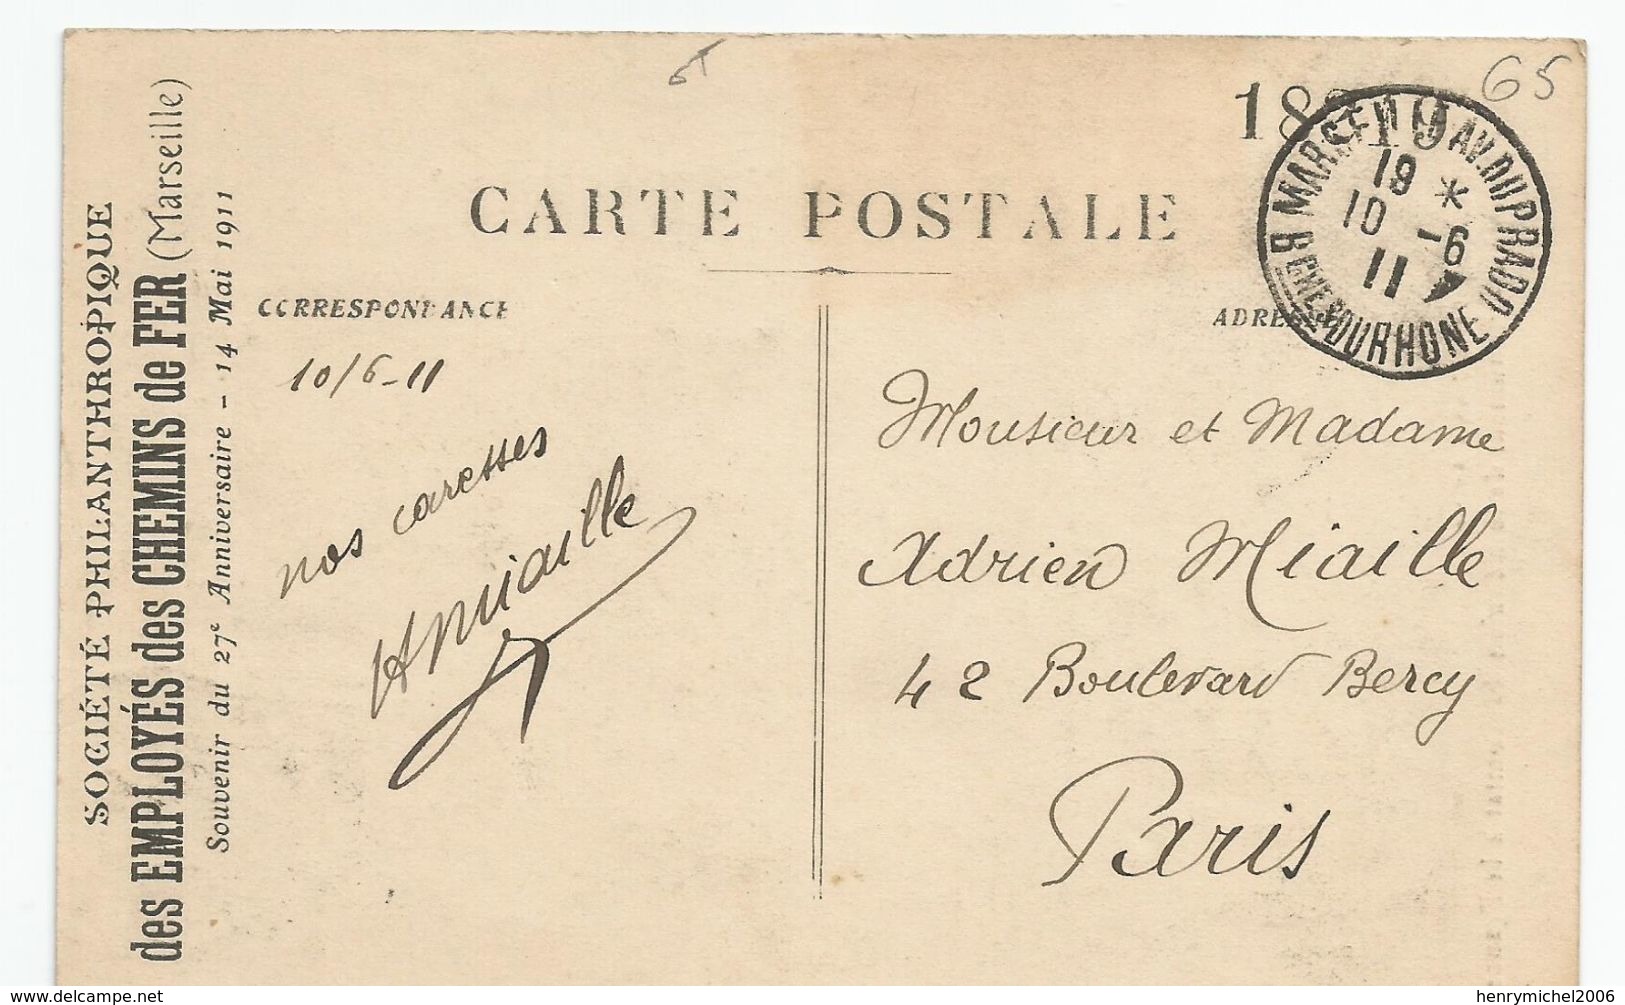 SOCIÉTÉ PHILANTHROPIQUE
des EMPLOYÉS des CHEMINS de FER (Marseille)
Souvenir du 27e Anniversaire - 14 Mai 1911
65
CARTE POSTALE
MARSEILLE AV. DU PRADO
18 *
10 -6
11
BCHES DU RHONE
CORRESPONDANCE
10/6-11
nos caresses
AMiaille
Monsieur et Madame
Adrien Miaille
42 Boulevard Bercy
Paris
delcampe.net
henrymichel2006